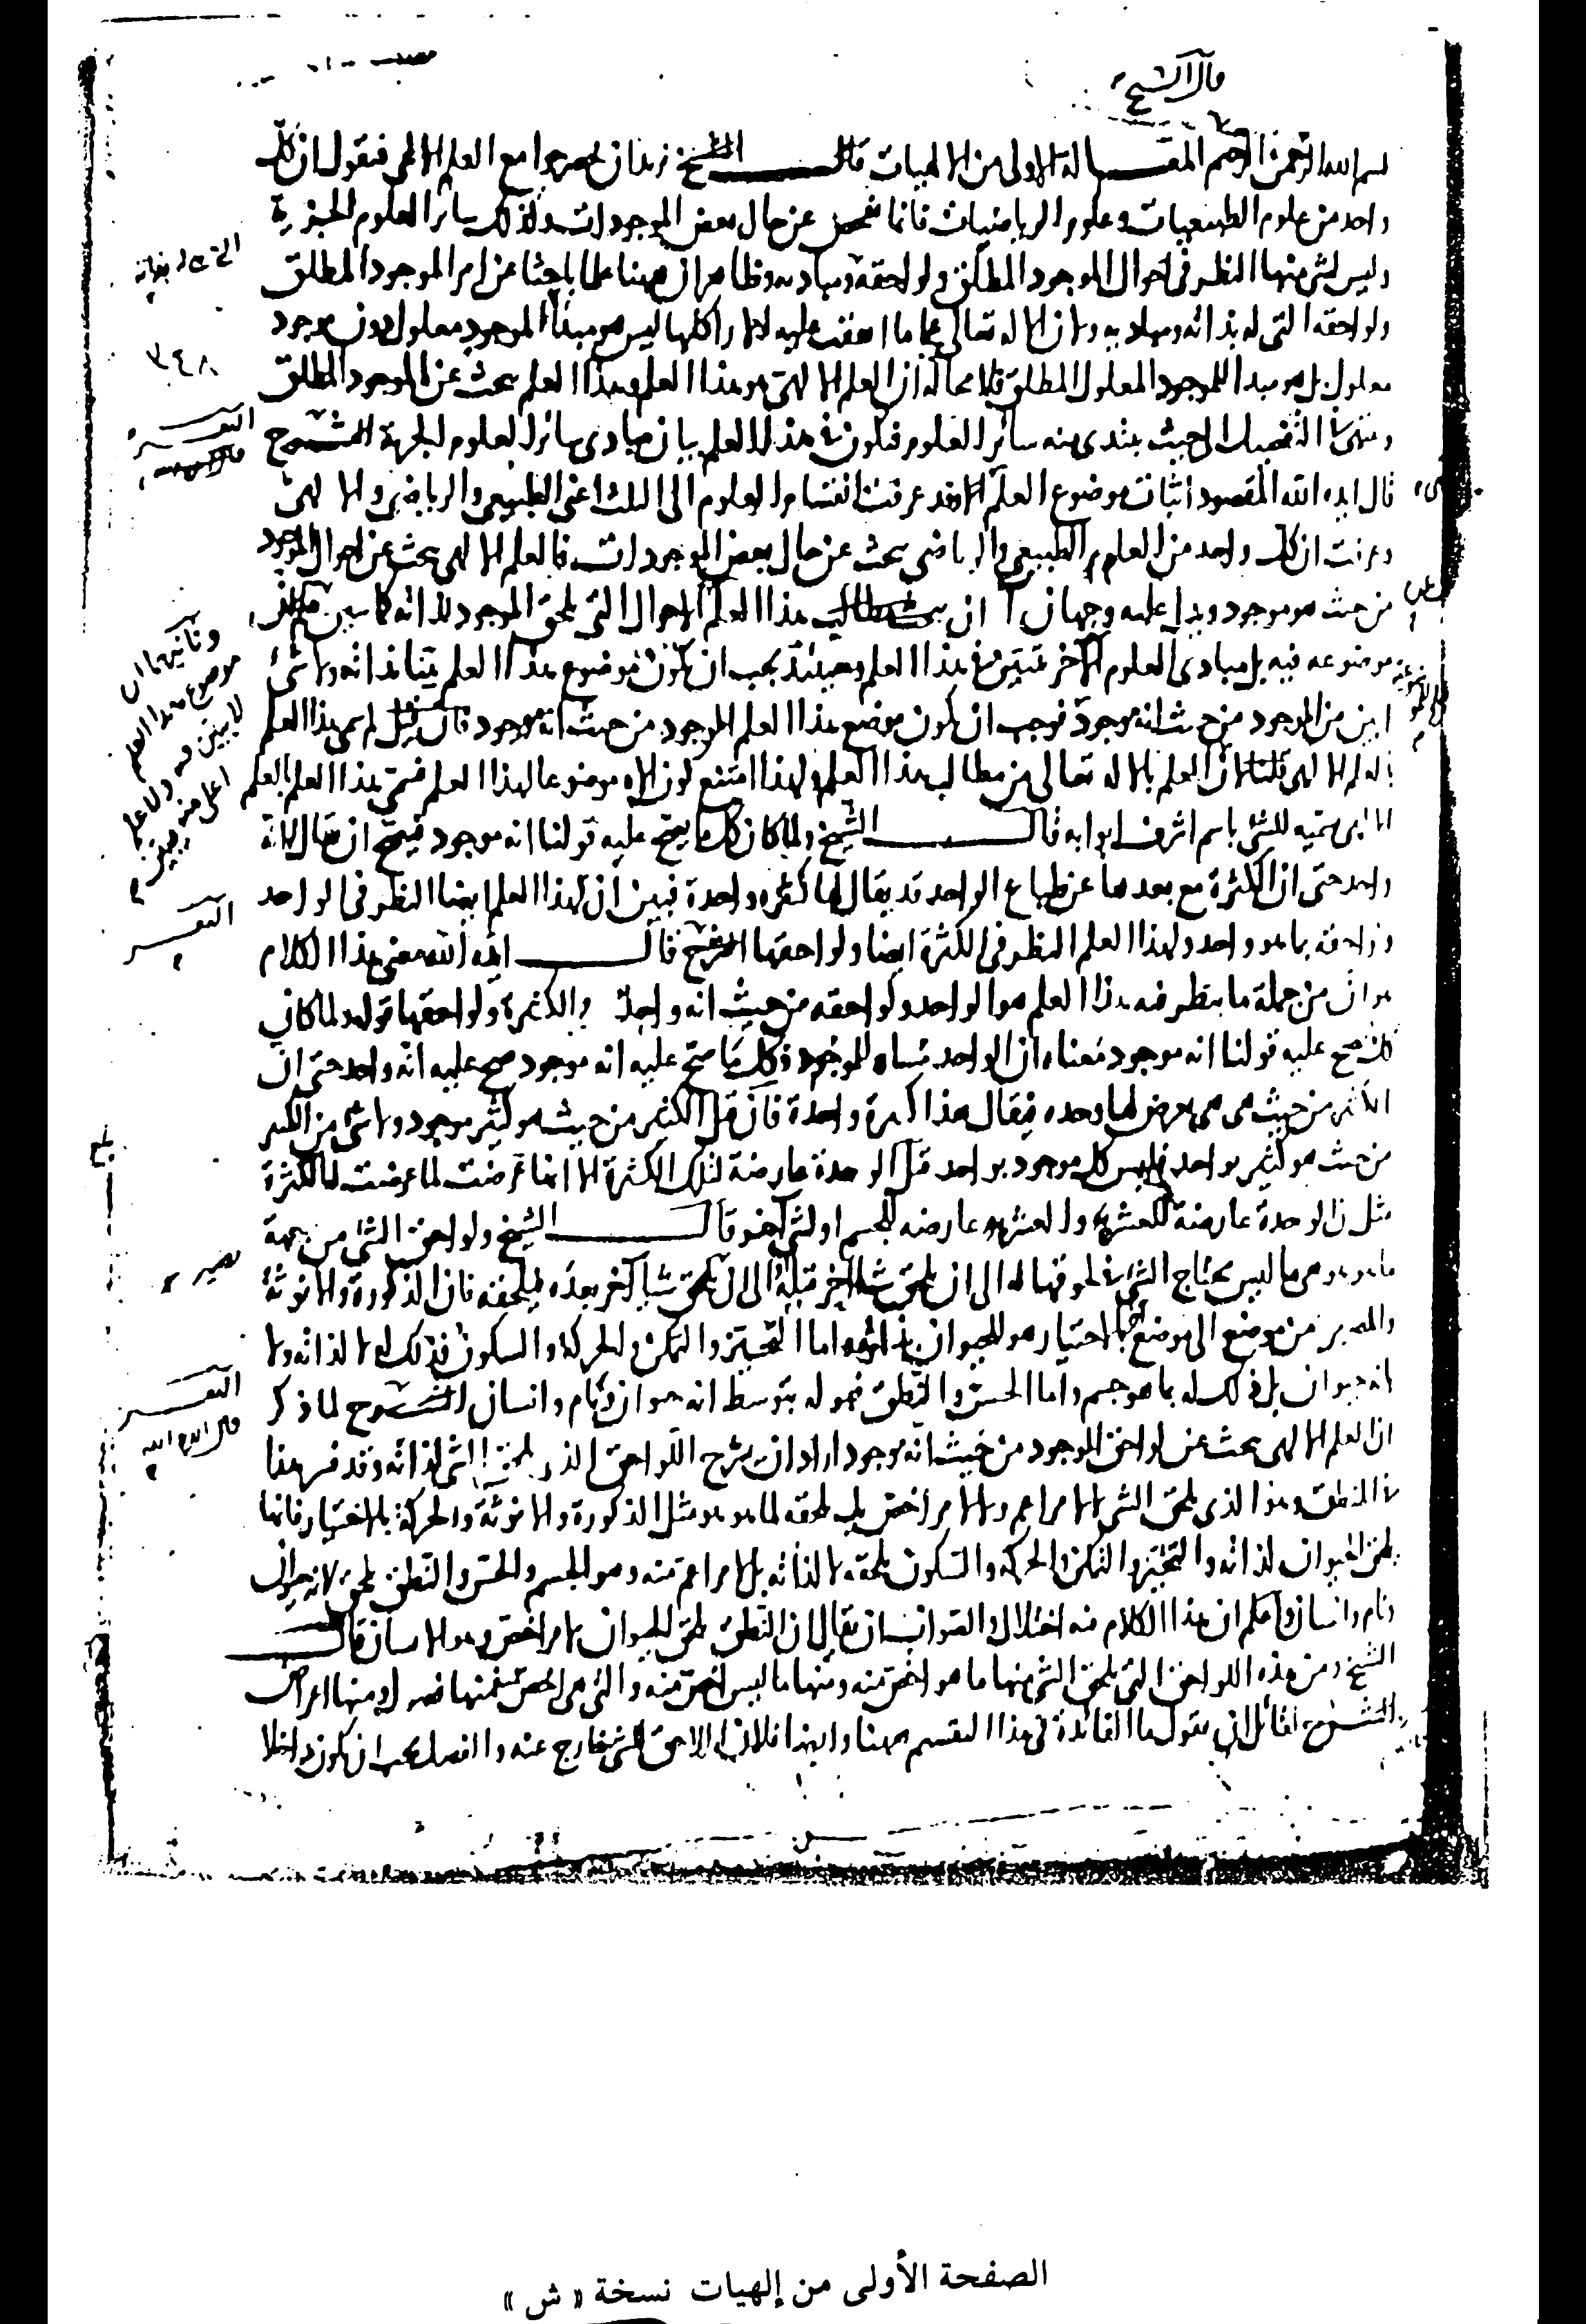 قال الشيخ
بسم الله الرحمن الرحيم المقالة الاولى من الالهيات قال الشيخ نريد ان نحصر جوامع العلم الالهى فنقول ان كل
واحد من علوم الطبيعيات وعلوم الرياضيات فانما تفحص عن حال بعض الموجودات وكذلك سائر العلوم الجزئية
وليس لشئ منها النظر فى احوال الموجود المطلق ولواحقه ومباديه وظاهر ان ههنا علما باحثا عن امر الموجود المطلق
ولواحقه التى له بذاته ومباديه ولان الاله تعالى على ما اتفقت عليه الاراء كلها ليس هو مبدأ لموجود معلول دون موجود
معلول بل هو مبدا للموجود المعلول المطلق فلا محالة ان العلم الالهى هو هذا العلم وهذا العلم يبحث عن الموجود المطلق
وينتهى فى التفصيل الى حيث يبتدى منه سائر العلوم فيكون فى هذا العلم بيان مبادى سائر العلوم الجزئية الشرح
قال ايده الله المقصود اثبات موضوع العلم الالهى قد عرفت انقسام العلوم الى الثلث اعنى الطبيعى والرياضى والالهى
وعرفت ان كل واحد من العلوم الطبيعى والرياضى يبحث عن حال بعض الموجودات فالعلم الالهى يبحث عن احوال الموجود
من حيث هو موجود ويدل عليه وجهان ا ان مطالب هذا العلم الاحوال التى تلحق الموجود لذاته كما سيبين
موضوعه فيه بل مبادى العلوم الاخر تتبين فى هذا العلم وحينئذ يجب ان يكون موضوع هذا العلم بينا بذاته ولا شئ
ابين من الموجود من حيث انه موجود فوجب ان يكون موضوع هذا العلم الموجود من حيث انه موجود فان قيل لم سمى هذا العلم
بالعلم الالهى قلنا لان العلم بالاله تعالى من مطالب هذا العلم ولهذا امتنع كون الاله موضوعا لهذا العلم فسمى هذا العلم بالعلم
الالهى تسمية للشئ باسم اشرف ابوابه قال الشيخ ولما كان كل ما يصح عليه قولنا انه موجود فيصح ان يقال له انه
واحد حتى ان الكثرة مع بعدها عن طباع الواحد قد يقال لها كثرة واحدة فبين ان لهذا العلم ايضا النظر فى الواحد
ولواحقه بما هو واحد ولهذا العلم النظر فى الكثرة ايضا ولواحقها الشرح قال ايده الله معنى هذا الكلام
هو ان من جملة ما ينظر فيه هذا العلم هو الواحد ولواحقه من حيث انه واحد والكثرة ولواحقها قوله ولما كان
كل يصح عليه قولنا انه موجود معناه ان الواحد مساو للموجود وكل ما صح عليه انه موجود صح عليه انه واحد حتى ان
الكثرة من حيث هى هى يعرض لها وحده فيقال هذا كثرة واحدة فان قيل الكثير من حيث هو كثير موجود ولا شئ من الكثير
من حيث هو كثير بواحد فليس كل موجود بواحد قيل الوحدة عارضة لتلك الكثرة لا انها عرضت لما عرضت له الكثرة
مثل ان الوحدة عارضة للعشرية والعشرية عارضه للجسم او لشئ آخر قال الشيخ ولواحق الشئ من جهة
ما هو هو هى ما ليس يحتاج الشئ فى لحوقها له الى ان يلحق شيئا آخر قبله او الى ان يلحق شيئا آخر بعده فيلحقه فان الذكورة والانوثة
والمصير من موضع الى موضع بالاختيار هو للحيوان بذاته واما التحيز والتمكن والحركة والسكون فذلك له لا لذاته ولا
انه حيوان بل ذلك له بما هو جسم واما الحس والنطق فهو له بتوسط انه حيوان ونام وانسان الشرح لما ذكر
ان العلم الالهى يبحث عن لواحق الموجود من حيث انه موجود اراد ان يشرح اللواحق الذى يلحق الشئ لذاته وقد فسر هذا
فى المنطق وهو الذى يلحق الشئ لا لامر اعم ولا لامر اخص بل لحقه لما هو هو مثل الذكورة والانوثة والحركة بالاختيار فانها
يلحق الحيوان لذاته والتحيز والتمكن والحركة والسكون يلحقه لا لذاته بل لامر اعم منه وهو الجسم والحس والنطق يلحق لانه حيوان
ونام وانسان واعلم ان هذا الكلام فيه اختلال والصواب ان يقال ان النطق يلحق الحيوان لامر اخص وهو الانسان قال
الشيخ ومن هذه اللواحق التى يلحق الشئ منها ما هو اخص منه ومنها ما ليس اخص منه والتى هى اخص فمنها فصول ومنها اعراض
الشرح لقائل ان يقول ما الفائدة فى هذا التقسيم ههنا وايضا فلان اللاحق للشئ خارج عنه والفصل يجب ان يكون داخلا
التى له بذاته
٣٤٨
التفسير
وثانيهما ان
موضوع هذا العلم
لا يبين فيه ولا علم
اعلى منه يبين
التفسير
بلغ
يصير
التفسير
قال ايده الله
الصفحة الأولى من إلهيات نسخة « ش »